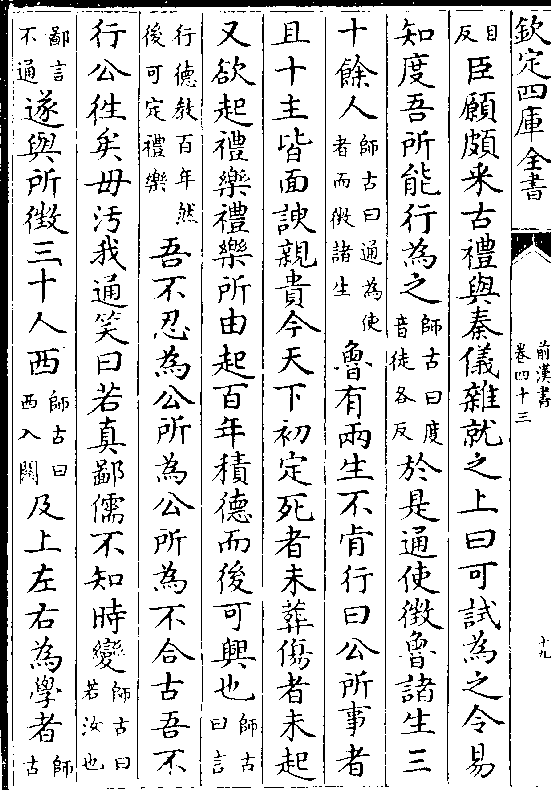 欽定四庫全書
前漢書
卷四十三
十九
目反臣願頗采古禮與秦儀雜就之上曰可試為之令易
知度吾所能行為之師古曰度音徒各反於是通使徵魯諸生三
十餘人師古曰通為使者而徵諸生魯有兩生不肯行曰公所事者
且十主皆面諛親貴今天下初定死者未葬傷者未起
又欲起禮樂禮樂所由起百年積德而後可興也師古曰言
行德敎百年然後可定禮樂吾不忍為公所為公所為不合古吾不
行公徃矣毋汚我通笑曰若真鄙儒不知時變師古曰若汝也
鄙言不通遂與所徵三十人西師古曰西入關及上左右為學者師古